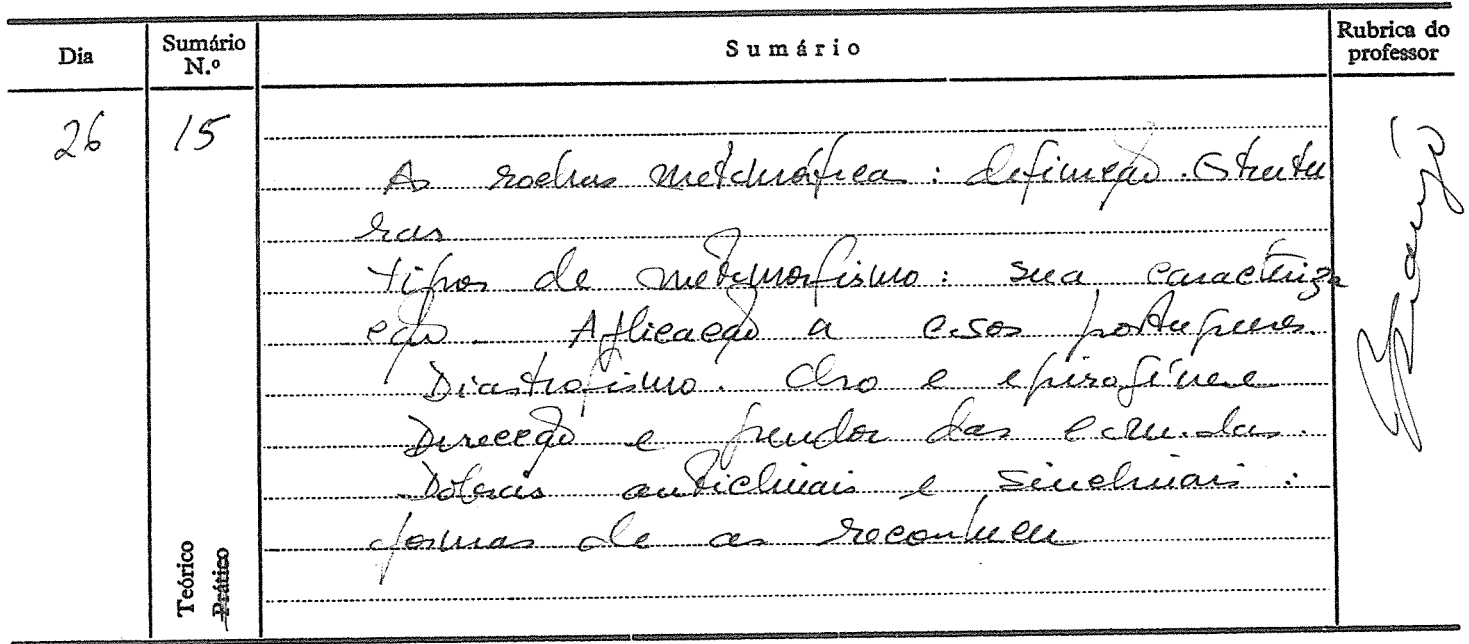 Dia Sumário N.º Sumário Rubrica do professor
26 15
As rochas metamórficas: definição. Estrutu
ras
tipos de metamorfismo: sua caracteriza
ção. Aplicação a casos portugueses.
Diastrofismo. Oro e epirogénese
Direcção e pendor das camadas.
Dobras anticlinais e sinclinais:
formas de as reconhecer
Teórico
Prático